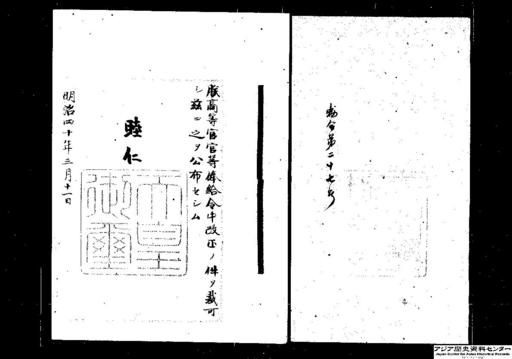 勅令第二十七号
朕高等官官等俸給令中改正ノ件ヲ裁可
シ茲ニ之ヲ公布セシム
睦仁
天皇御璽
明治四十年三月十一日
アジア歴史資料センター
Japan Center for Asian Historical Records